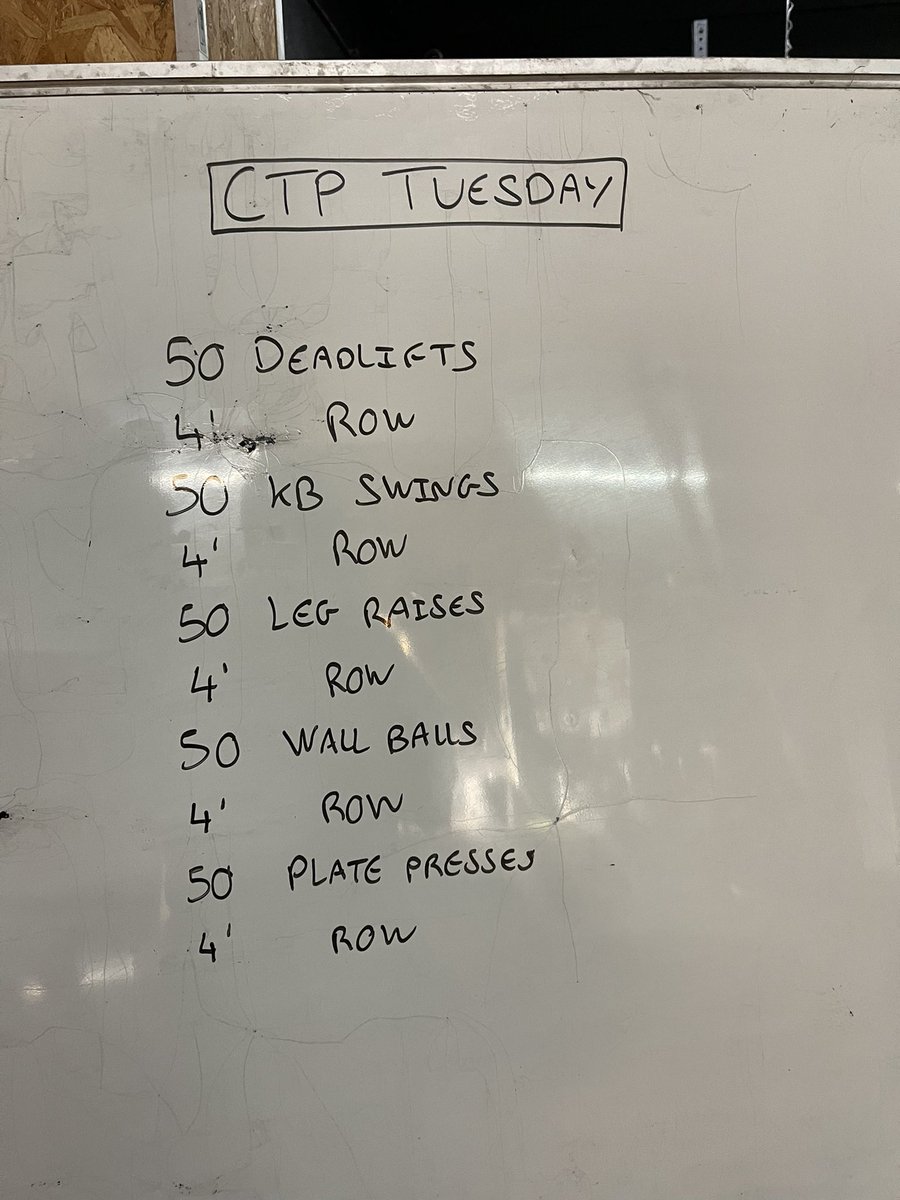 CTP TUESDAY
50 DEADLIFTS
4' ROW
50 KB SWINGS
4' ROW
50 LEG RAISES
4' ROW
50 WALL BALLS
4' ROW
50 PLATE PRESSES
4' ROW